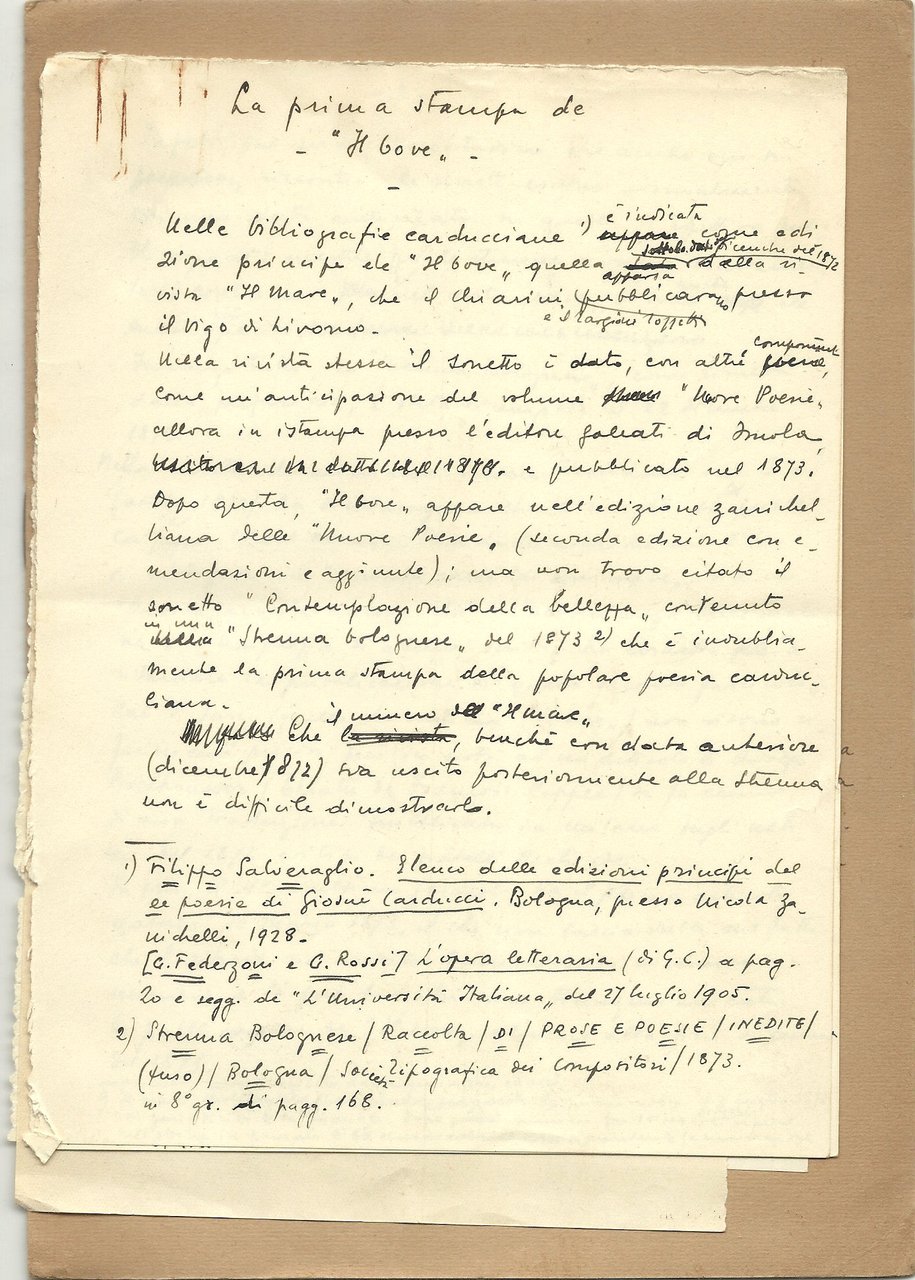 La prima stampa de
- "Il bove„ -
-
Nelle bibliografie carducciane 1) è indicata come edi
zione principe de "Il bove„ quella apparsa sotto la data dicembre del 1872 della ri-
vista "Il Mare„, che il Chiarini e il Targioni Tozzetti pubblicarano presso
il Vigo di Livorno.
Nella rivista stessa il sonetto è dato, con altri componimenti,
come un'anticipazione del volume "Nuove Poesie„
allora in istampa presso l'editore Galeati di Imola
e pubblicato nel 1873.
Dopo questa, "Il bove„ appare nell'edizione zanichel-
liana delle "Nuove Poesie„ (seconda edizione con e-
mendazioni e aggiunte); ma non trovo citato il
sonetto "Contemplazione della bellezza„ contenuto
in una "Strenna bolognese„ del 1873 2) che è indubbia-
mente la prima stampa della popolare poesia carduc-
ciana.
Che il numero del "Il Mare„, benché con data anteriore
(dicembre 1872) sia uscito posteriormente alla Strenna
non è difficile dimostrarlo.
1) Filippo Salveraglio. Elenco delle edizioni principi del
le poesie di Giosuè Carducci. Bologna, presso Nicola Za-
nichelli, 1928.
[G. Federzoni e G. Rossi] L'opera letteraria (di G. C.) a pag.
20 e segg. de "L'Università Italiana„ del 27 luglio 1905.
2) Strenna Bolognese / Raccolta / DI / PROSE E POESIE / INEDITE /
(fuso) / Bologna / Società Tipografica dei Compositori / 1873.
in 8° gr. di pagg. 168.